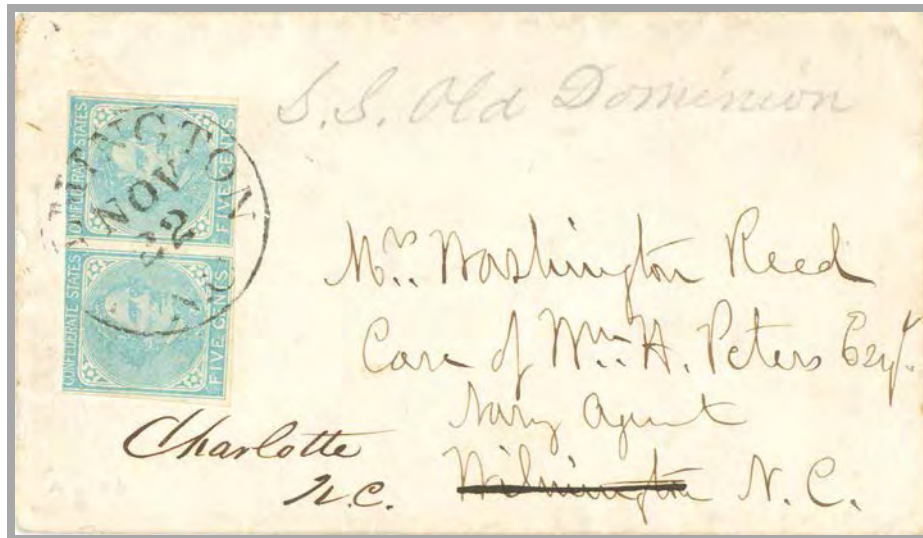 S.S. Old Dominion
CONFEDERATE STATES
FIVE CENTS
CONFEDERATE STATES
FIVE CENTS
NGTON
NOV
22
Mrs. Washington Reed
Care of Wm. H. Peters Esqr.
Navy Agent
Wilmington N. C.
Charlotte
N.C.